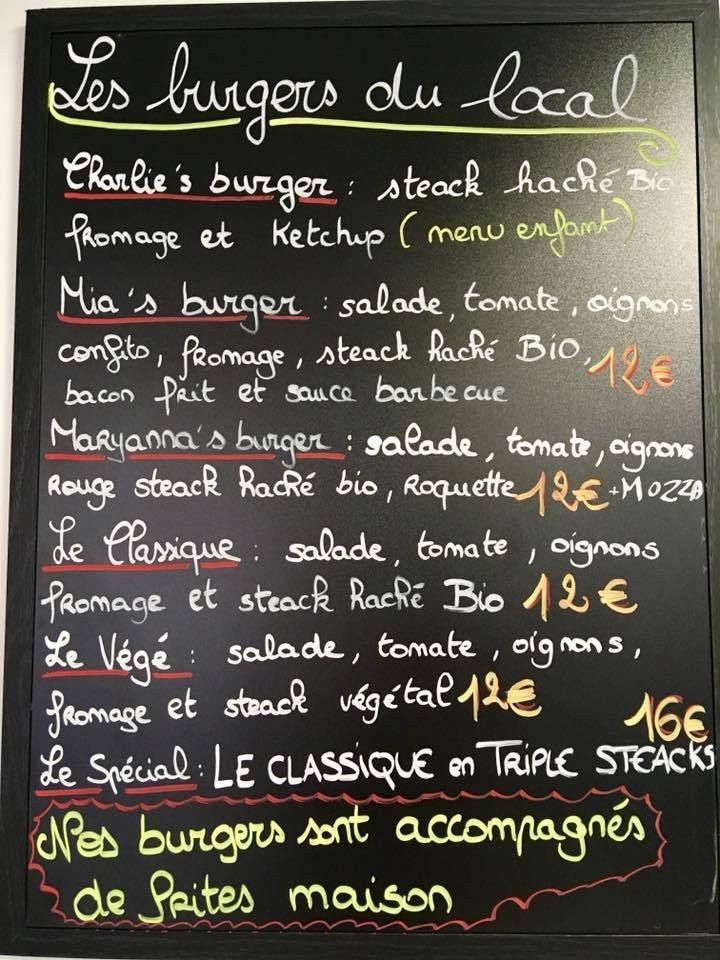 Les burgers du local
Charlie's burger : steack haché Bio
fromage et Ketchup (menu enfant)
Mia's burger : salade, tomate, oignons
confits, fromage, steack haché BIO, 12€
bacon frit et sauce barbecue
Maryanna's burger : salade, tomate, oignons
Rouge steack haché bio, Roquette 12€ + MOZZA
Le Classique : salade, tomate, oignons
fromage et steack haché Bio 12€
Le Végé : salade, tomate, oignons,
fromage et steack végétal 12€
16€
Le Spécial : LE CLASSIQUE en TRIPLE STEACKS
Nos burgers sont accompagnés
de frites maison